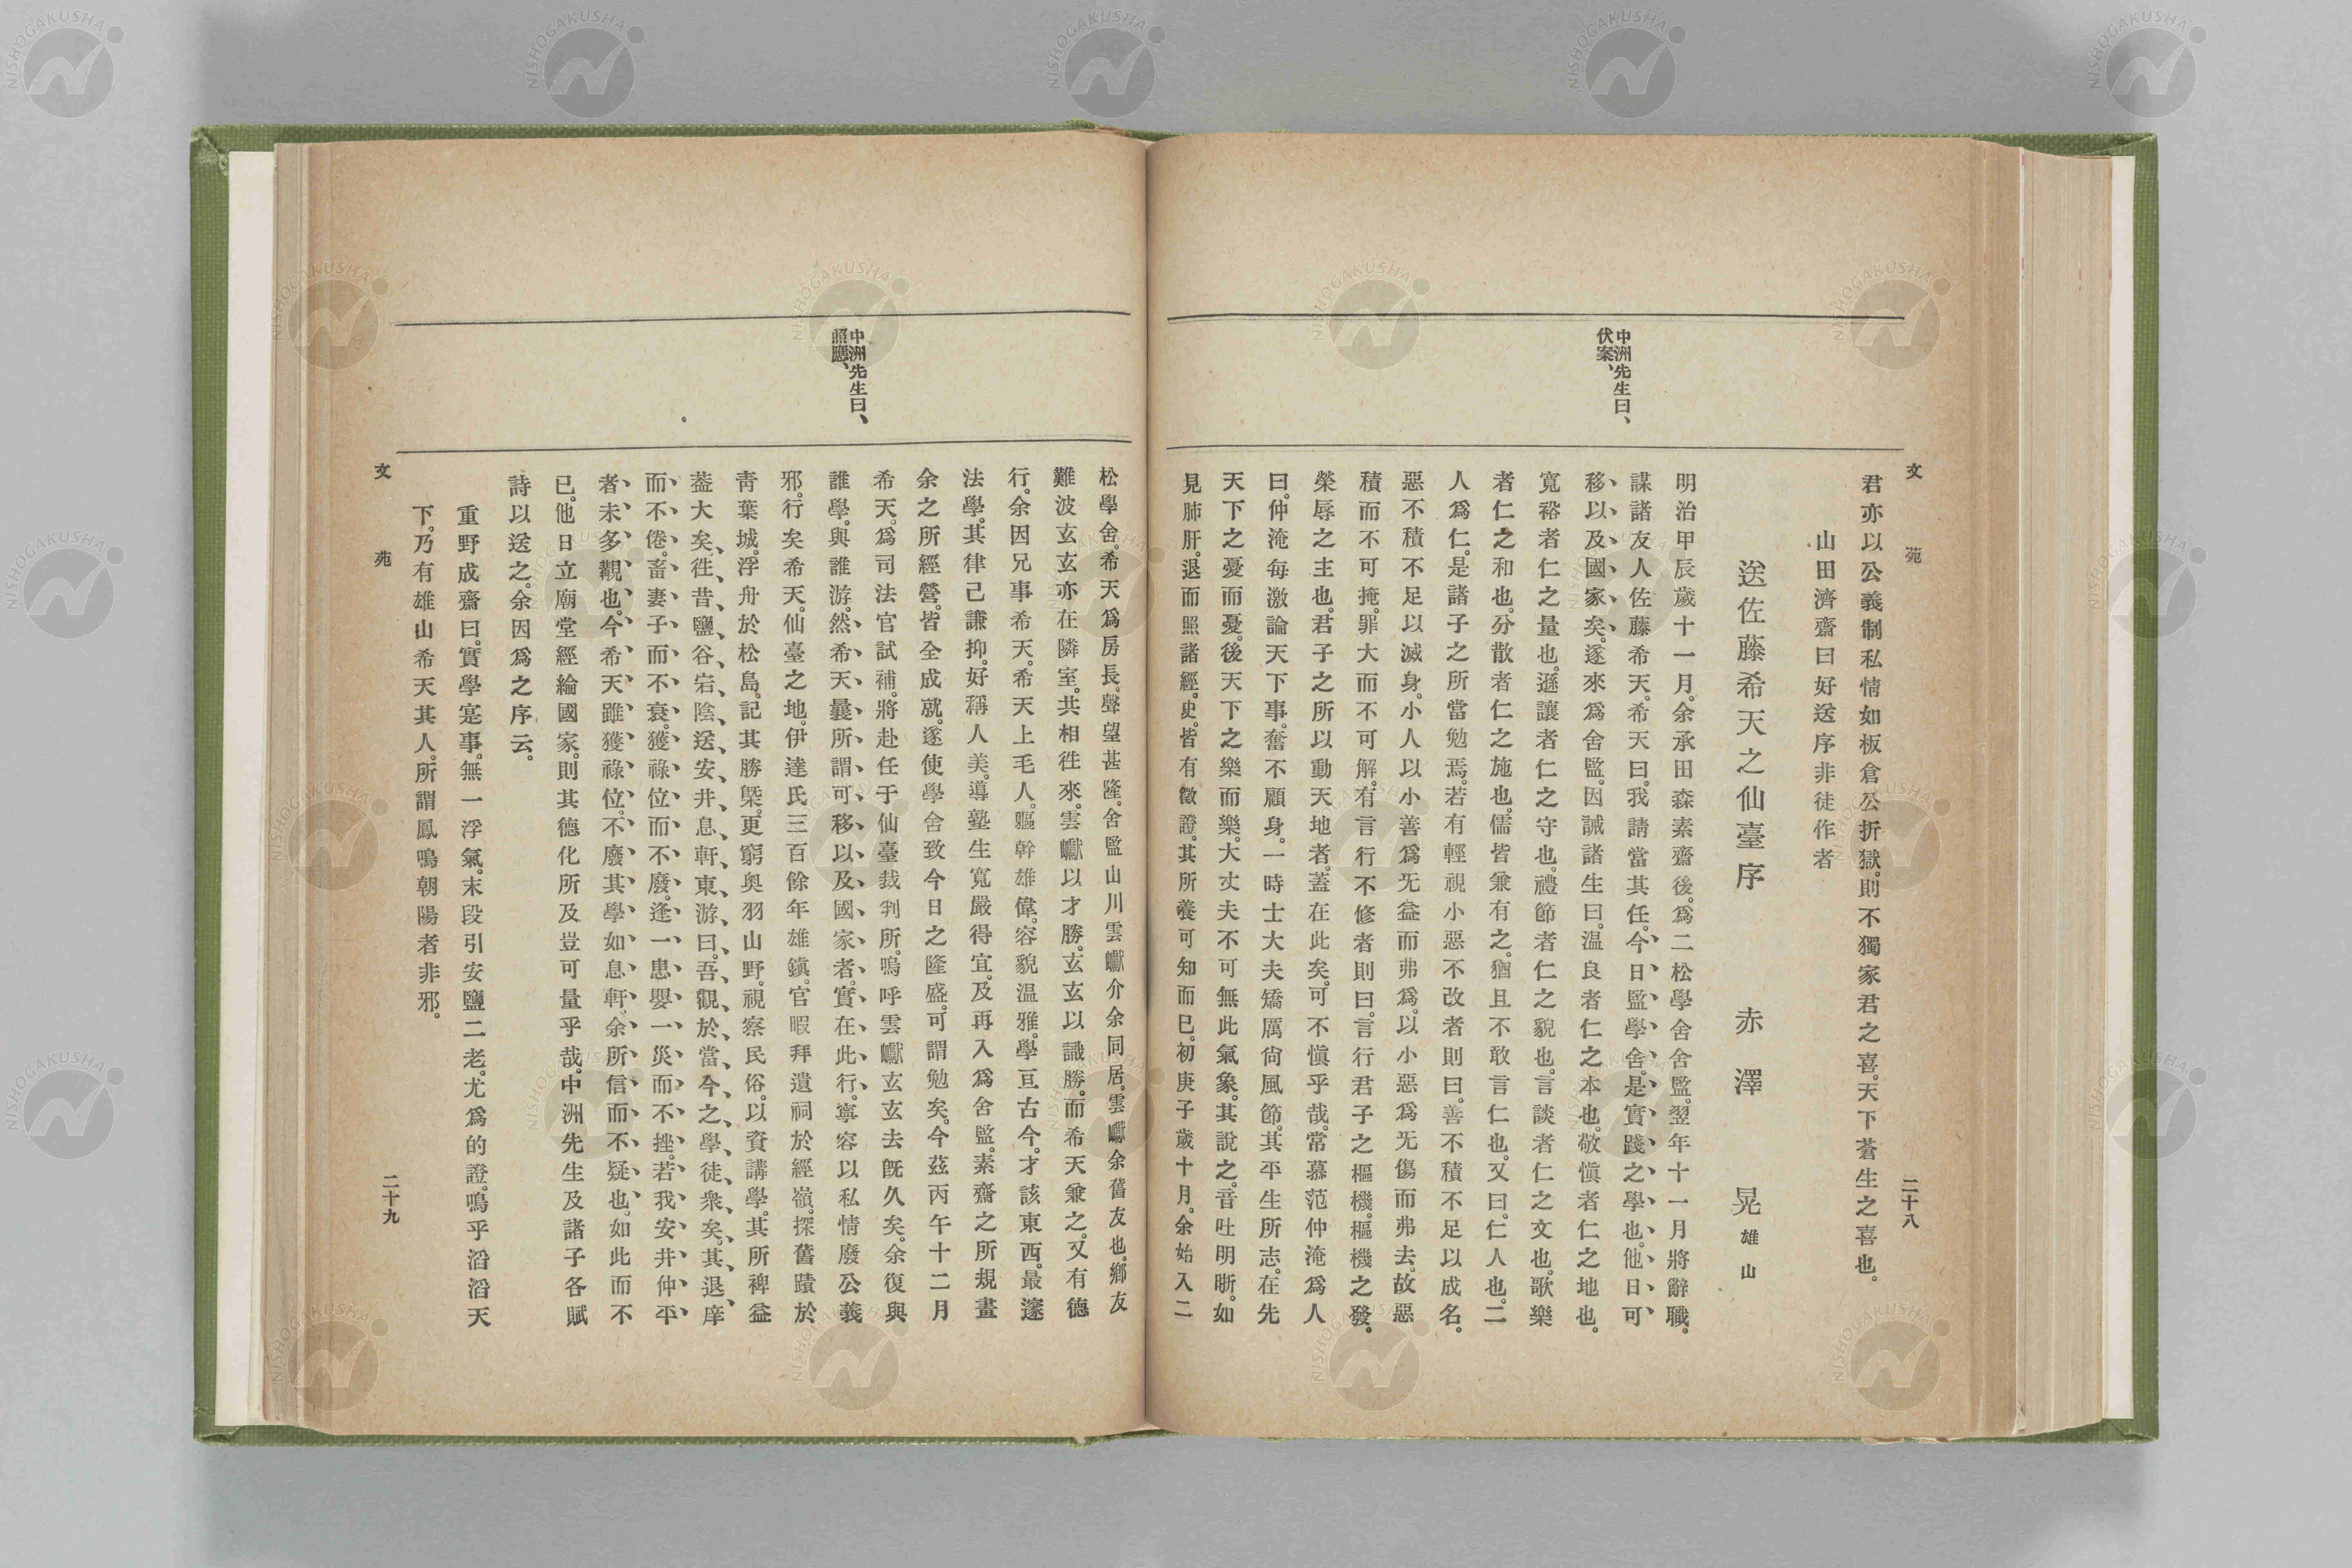 文苑
二十八
君亦以公義制私情如板倉公折獄。則不獨家君之喜。天下蒼生之喜也。
山田濟齋曰好送序非徒作者
送佐藤希天之仙臺序
赤澤晃雄山
中洲先生曰、
伏案、
明治甲辰歲十一月。余承田森素齋後。爲二松學舍舍監。翌年十一月將辭職。
謀諸友人佐藤希天。希天曰。我請當其任。今日監學舍。是實踐之學也。他日可
移以及國家矣。遂來爲舍監。因誡諸生曰。温良者仁之本也。敬愼者仁之地也。
寬裕者仁之量也。遜讓者仁之守也。禮節者仁之貌也。言談者仁之文也。歌樂
者仁之和也。分散者仁之施也。儒皆兼有之。猶且不敢言仁也。又曰。仁人也。二
人爲仁。是諸子之所當勉焉。若有輕視小惡不改者則曰。善不積不足以成名。
惡不積不足以滅身。小人以小善爲无益而弗爲。以小惡爲无傷而弗去。故惡
積而不可掩。罪大而不可解。有言行不修者則曰。言行君子之樞機。樞機之發。
榮辱之主也。君子之所以動天地者。蓋在此矣。可不愼乎哉。常慕范仲淹爲人
曰。仲淹每激論天下事。奮不顧身。一時士大夫矯厲尙風節。其平生所志。在先
天下之憂而憂。後天下之樂而樂。大丈夫不可無此氣象。其說之。音吐明晣。如
見肺肝。退而照諸經。史。皆有徵證。其所養可知而已。初庚子歲十月。余始入二
中洲先生曰、
照應、
松學舍。希天爲房長。聲望甚隆。舍監山川雲巘介余同居。雲巘余舊友也。鄉友
難波玄玄亦在隣室。共相徃來。雲巘以才勝。玄玄以識勝。而希天兼之。又有德
行。余因兄事希天。希天上毛人。軀幹雄偉。容貌温雅。學亘古今。才該東西。最邃
法學。其律己謙抑。好稱人美。導塾生寬嚴得宜。及再入爲舍監。素齋之所規畫
余之所經營。皆全成就。遂使學舍致今日之隆盛。可謂勉矣。今茲丙午十二月
希天。爲司法官試補。將赴任于仙臺裁判所。嗚呼雲巘玄玄去旣久矣。余復與
誰學。與誰游。然希天曩所謂可移以及國家者。實在此行。寧容以私情廢公義
邪。行矣希天。仙臺之地。伊達氏三百餘年雄鎭。官暇拜遺祠於經嶺。探舊蹟於
靑葉城。浮舟於松島。記其勝槩。更窮奥羽山野。視察民俗。以資講學。其所裨益
蓋大矣。徃昔鹽谷宕陰送安井息軒東游曰。吾觀於當今之學徒衆矣。其退庠
而不倦。畜妻子而不衰。獲祿位而不廢。逢一患嬰一災而不挫。若我安井仲平
者。未多觀也。今希天雖獲祿位。不廢其學如息軒。余所信而不疑也。如此而不
已。他日立廟堂經綸國家。則其德化所及豈可量乎哉。中洲先生及諸子各賦
詩以送之。余因爲之序云。
重野成齋曰。實學寔事。無一浮氣。末段引安鹽二老。尤爲的證。嗚乎滔滔天
下。乃有雄山希天其人。所謂鳳鳴朝陽者非邪。
文苑
二十九